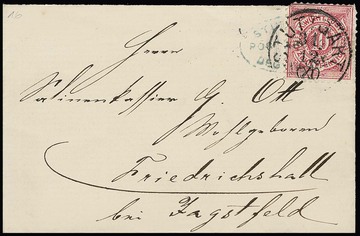 10
Herrn
Salinenkassier G. Ott
Wohlgeboren
Friedrichshall
bei Jagstfeld